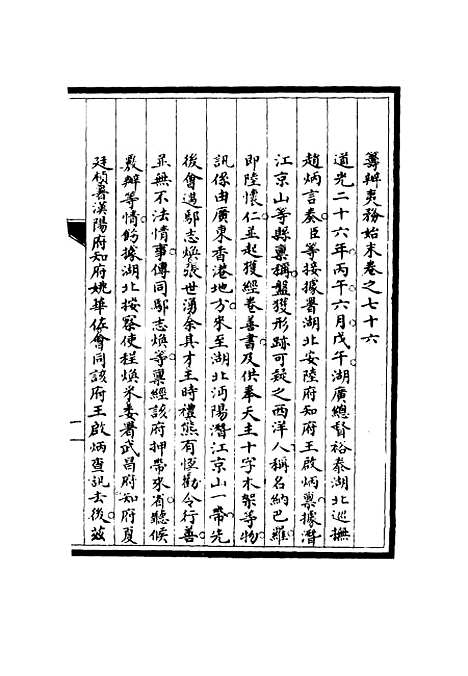 籌辦夷務始末卷之七十六
道光二十六年丙午六月戊午湖廣總督裕泰湖北巡撫
趙炳言奏臣等接據署湖北安陸府知府王啟炳稟據潛
江京山等縣稟稱盤獲形跡可疑之西洋人稱名納巴羅
即陸懷仁並起獲經卷善書及供奉天主十字木架等物
訊係由廣東香港地方來至湖北沔陽潛江京山一帶先
後會遇鄢志煥張世湧余其才王時禮熊有恆勸令行善
並無不法情事傳同鄢志煥等稟經該府押帶來省聽候
敷辦等情飭據湖北按察使程煥采委署武昌府知府夏
廷楨署漢陽府知府姚華佐會同該府王啟炳查訊去後茲